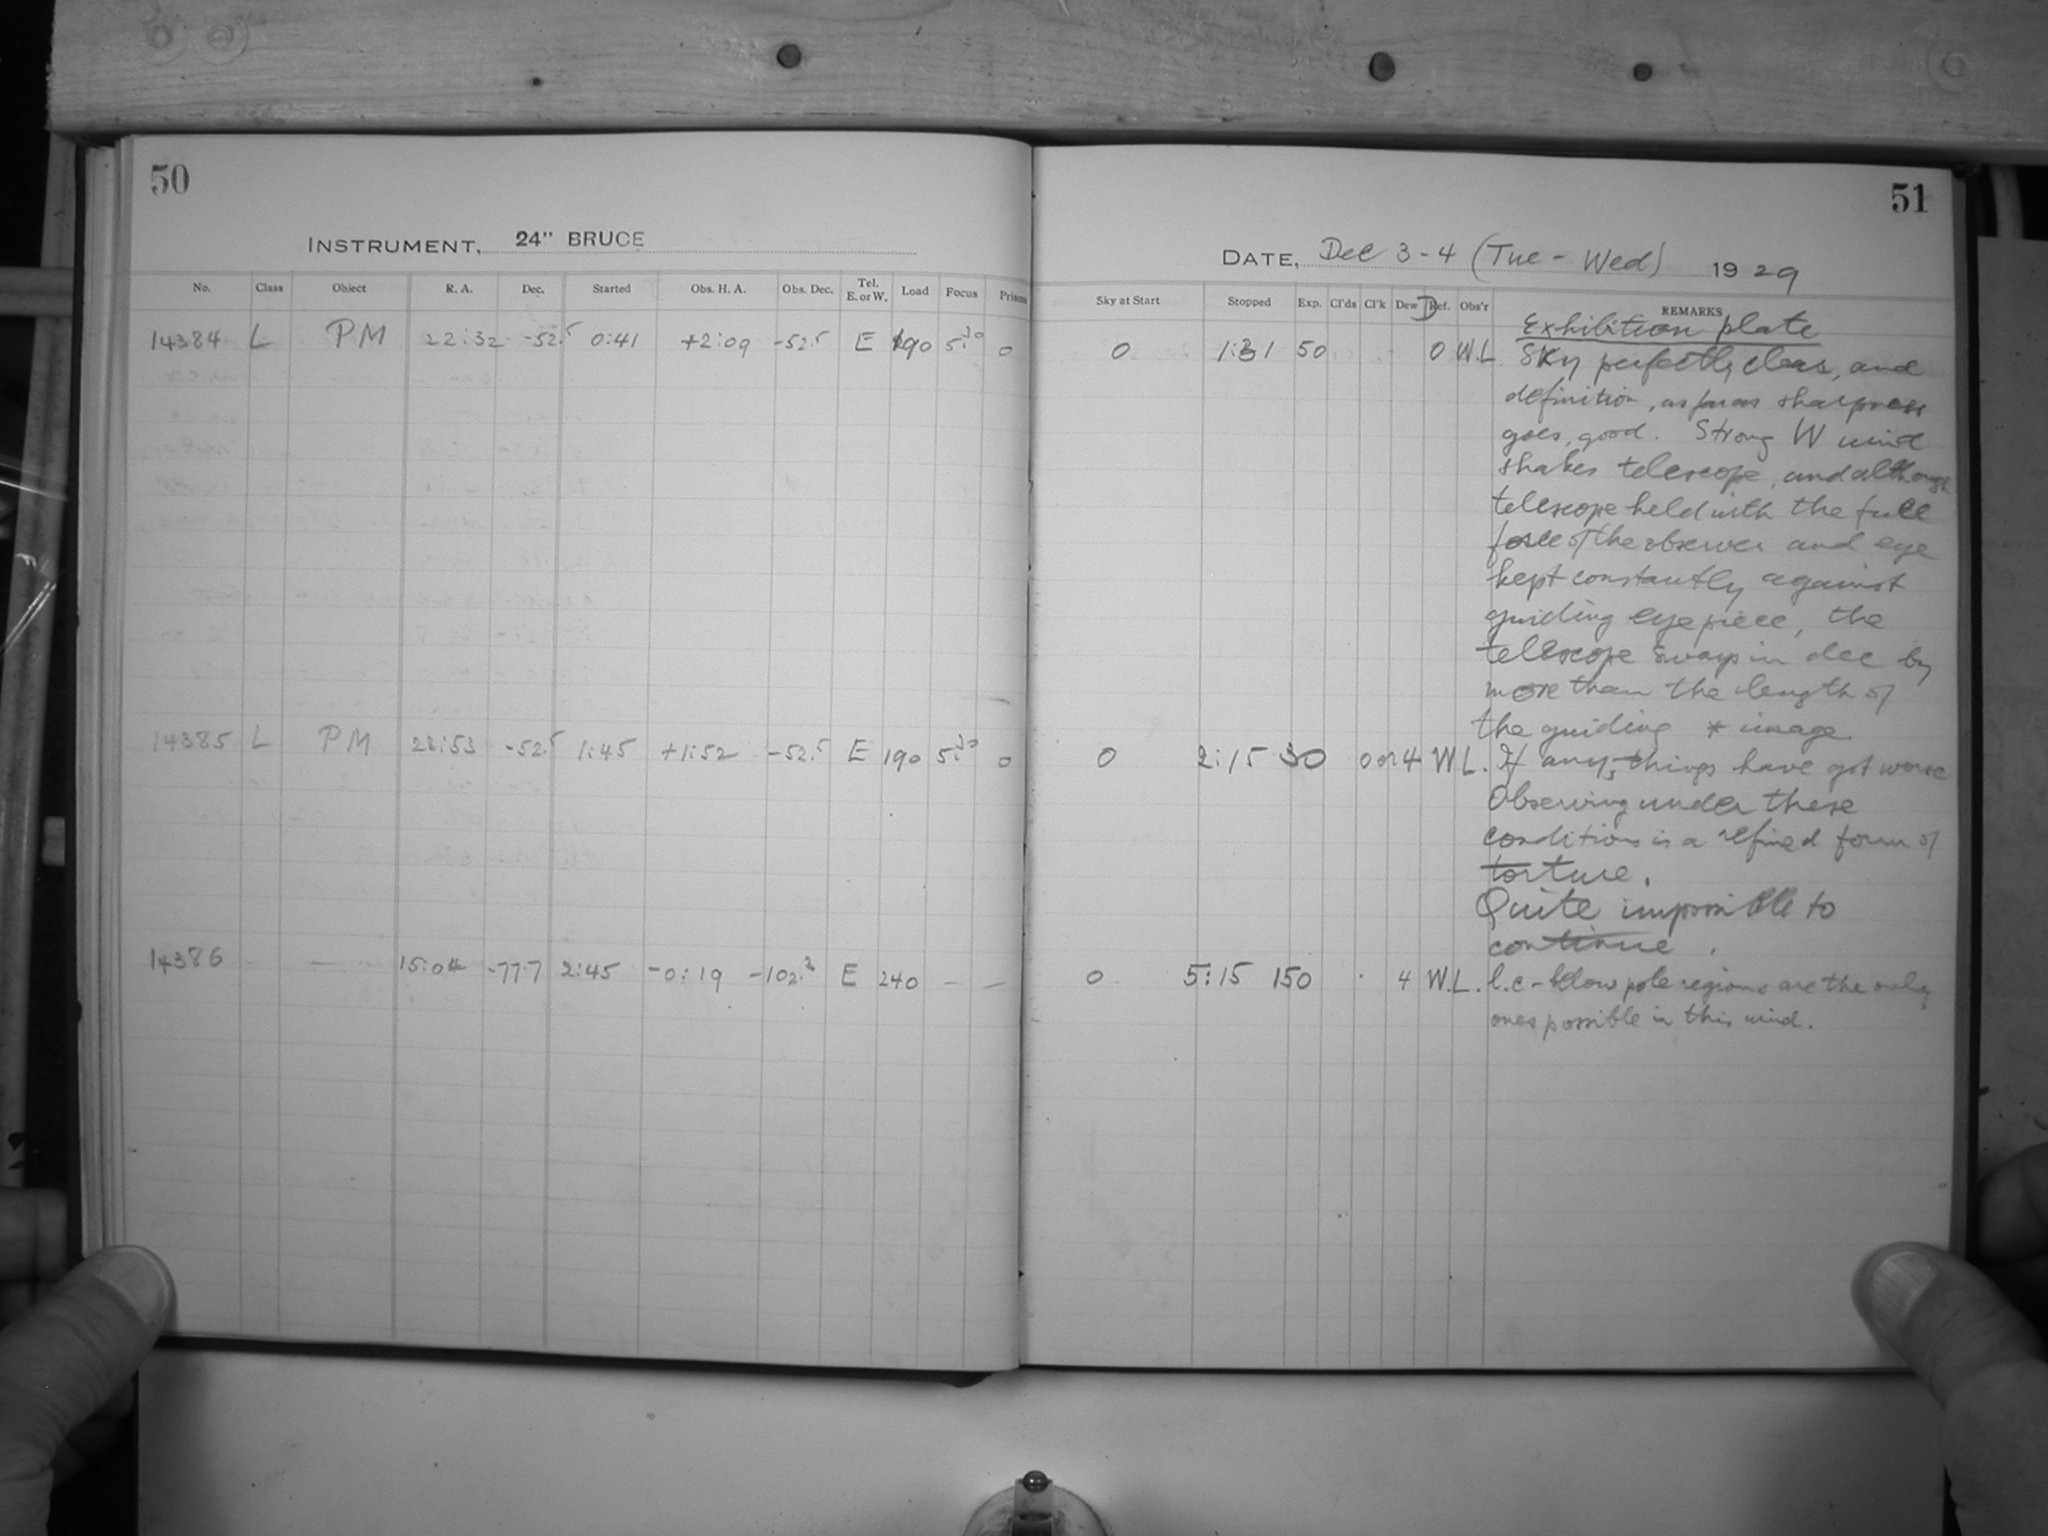 50
INSTRUMENT, 24" BRUCE
No. Class Object R. A. Dec. Started Obs. H. A. Obs. Dec. Tel. E. or W. Load Focus Prism
14384 L PM 22:32 -52.5 0:41 +2:09 -52.5 E 190 5.30 0
14385 L PM 23:53 -52.5 1:45 +1:52 -52.5 E 190 5.30 0
14386 — — 15:04 -77.7 2:45 -0:19 -102.3 E 240 — —
51
DATE, Dec 3-4 (Tue - Wed) 1929
Sky at Start Stopped Exp. Cl'ds Cl'k Dew D Ref. Obs'r REMARKS
Exhibition plate
0 1:31 50 0 W.L. Sky perfectly clear, and
definition, as far as sharpness
goes, good. Strong W wind
shakes telescope, and although
telescope held with the full
force of the observer and eye
kept constantly against
guiding eyepiece, the
telescope sways in dec by
more than the length of
the guiding * image.
0 2:15 30 0 or 4 W L. If any, things have got worse
Observing under these
conditions is a refined form of
torture.
Quite impossible to
continue.
0 5:15 150 4 W.L. l.c - below pole regions are the only
ones possible in this wind.